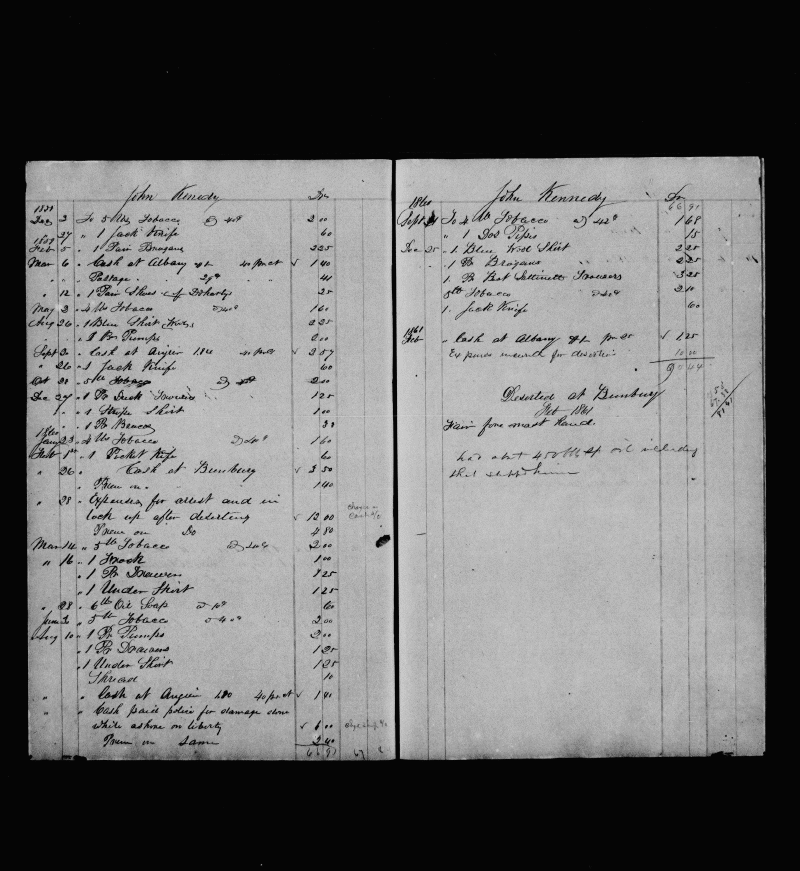 John Kenedy Dr
Dec 2 To 5 lbs Tobacco @ 40c 2 00
" 27 " 1 Jack Knife 60
1859
Feb 5 " 1 Pair Brogans 2 25
Mar 6 " Cash at Albany 40 pr ct 1 40
" " Postage 29c 41
" 12 " 1 Pair Shoes of Doharty 25
May 2 " 4 lbs Tobacco @ 40c 1 60
Aug 26 " 1 Blue Shirt 2 25
" 1 Pr Pumps 2 00
Sept 3 " Cash at Angier 40 pr ct 2 57
" 26 " 1 Jack Knife 60
Oct 20 " 5 lb Tobacco @ 40c 2 00
Dec 27 " 1 Pr Duck Trousers 1 25
" " 1 Stripe Shirt 1 00
" 1 Pr
1860
Jany 23 " 4 lbs Tobacco @ 40c 1 60
Feb 1st " 1 Pocket Knife 60
" 26 " Cash at Bunbury 3 50
Prem on " 1 40
" 28 " Expenses for arrest and in
lock up after deserting 12 00
Prem on Do 4 80
Mar 14 " 5 lb Tobacco @ 40c 2 00
" 16 " 1 Frock 1 00
" 1 Pr Drawers 1 25
" 1 Under Shirt 1 25
" 28 " 6 lb Oil Soap @ 10c 60
June 2 " 5 lb Tobacco @ 40c 2 00
Aug 10 " 1 Pr Pumps 2 00
" 1 Pr Drawers 1 25
" 1 Under Shirt 1 25
Thread 10
" " Cash at Angier 1.00 40 pr ct 1 40
" " Cash paid police for damage done
while ashore on liberty 6 00
Prem on same 2 40
66 91
67
1860 John Kennedy Dr
66 91
Sept 21 To 4 lb Tobacco @ 42c 1 68
" 1 Dos Pipes 15
Dec 25 " 1 Blue Wool Shirt 2 25
" 1 Pr Brogans 2 25
1 Pr Best Sattinett Trousers 3 25
5 lb Tobacco 2 10
1 Jack Knife 60
1861
Feb " Cash at Albany pr 25 1 25
Expenses incurred for desertion 10 00
90 44
Deserted at Bunbury
Feb 1861
Fair fore mast hand.
had abt 450 lbs sp oil including
that shipt home